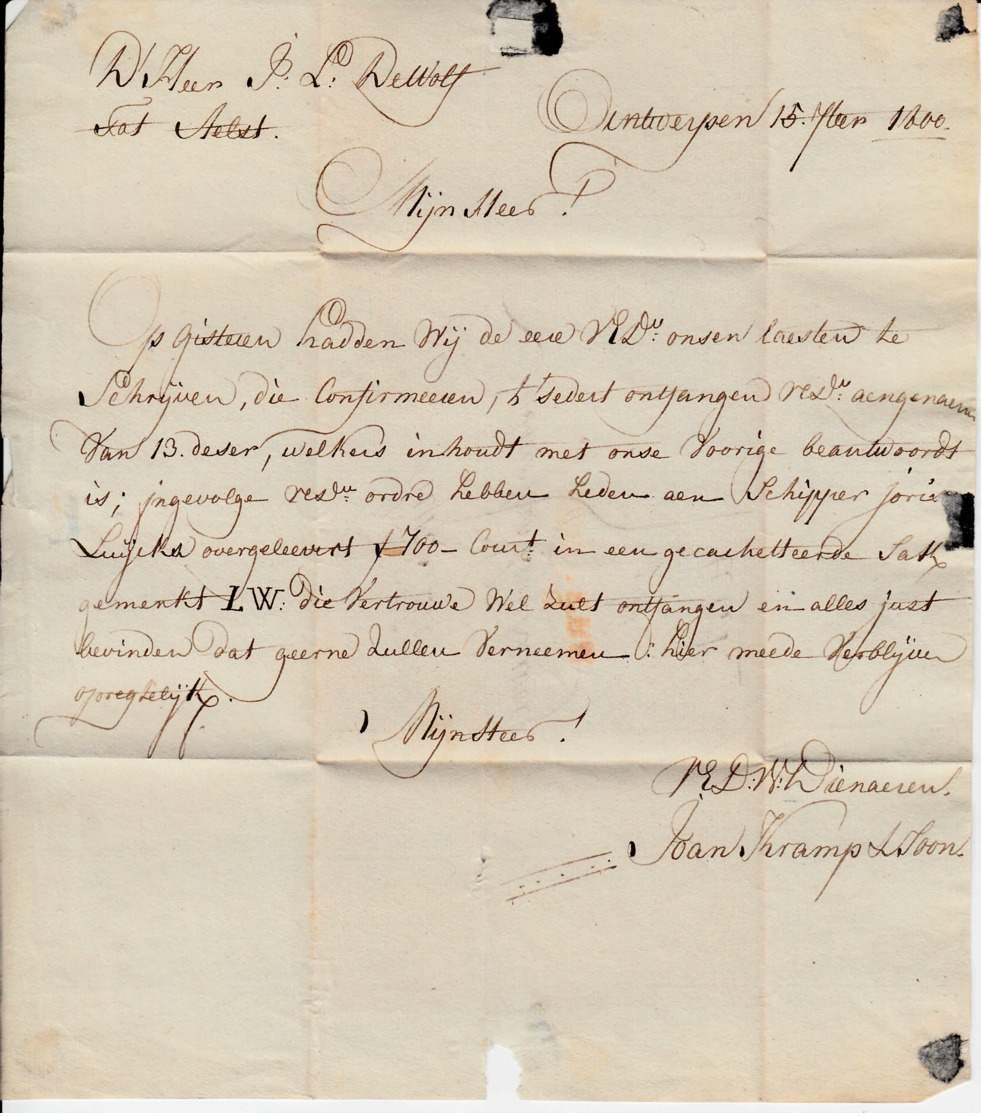 D'Heer J: Ld. DeWolf
Tot Aelst.
Antwerpen 15. 7ber 1800.
Mijn Heer!
Op gisteren hadden Wij de eere VEDu: onsen laesten te
Schrijven, die Confirmeeren, 't sedert ontfangen VEDu: aengenaeme
Van 13. deser, welkers inhoudt met onse Voorige beantwoordt
is; ingevolge VEDu ordre hebben heden aen Schipper joris
Luijckx overgeleevert f 700- Court. in een gecachetteerde Sak
gemerkt LW: die Vertrouwe Wel zult ontfangen en alles just
bevinden dat geerne zullen Verneemen: hier meede Verblijven
opregtelijk.
Mijn Heer!
VE.D:W: Dienaeren.
Joan Kramp & Soon.